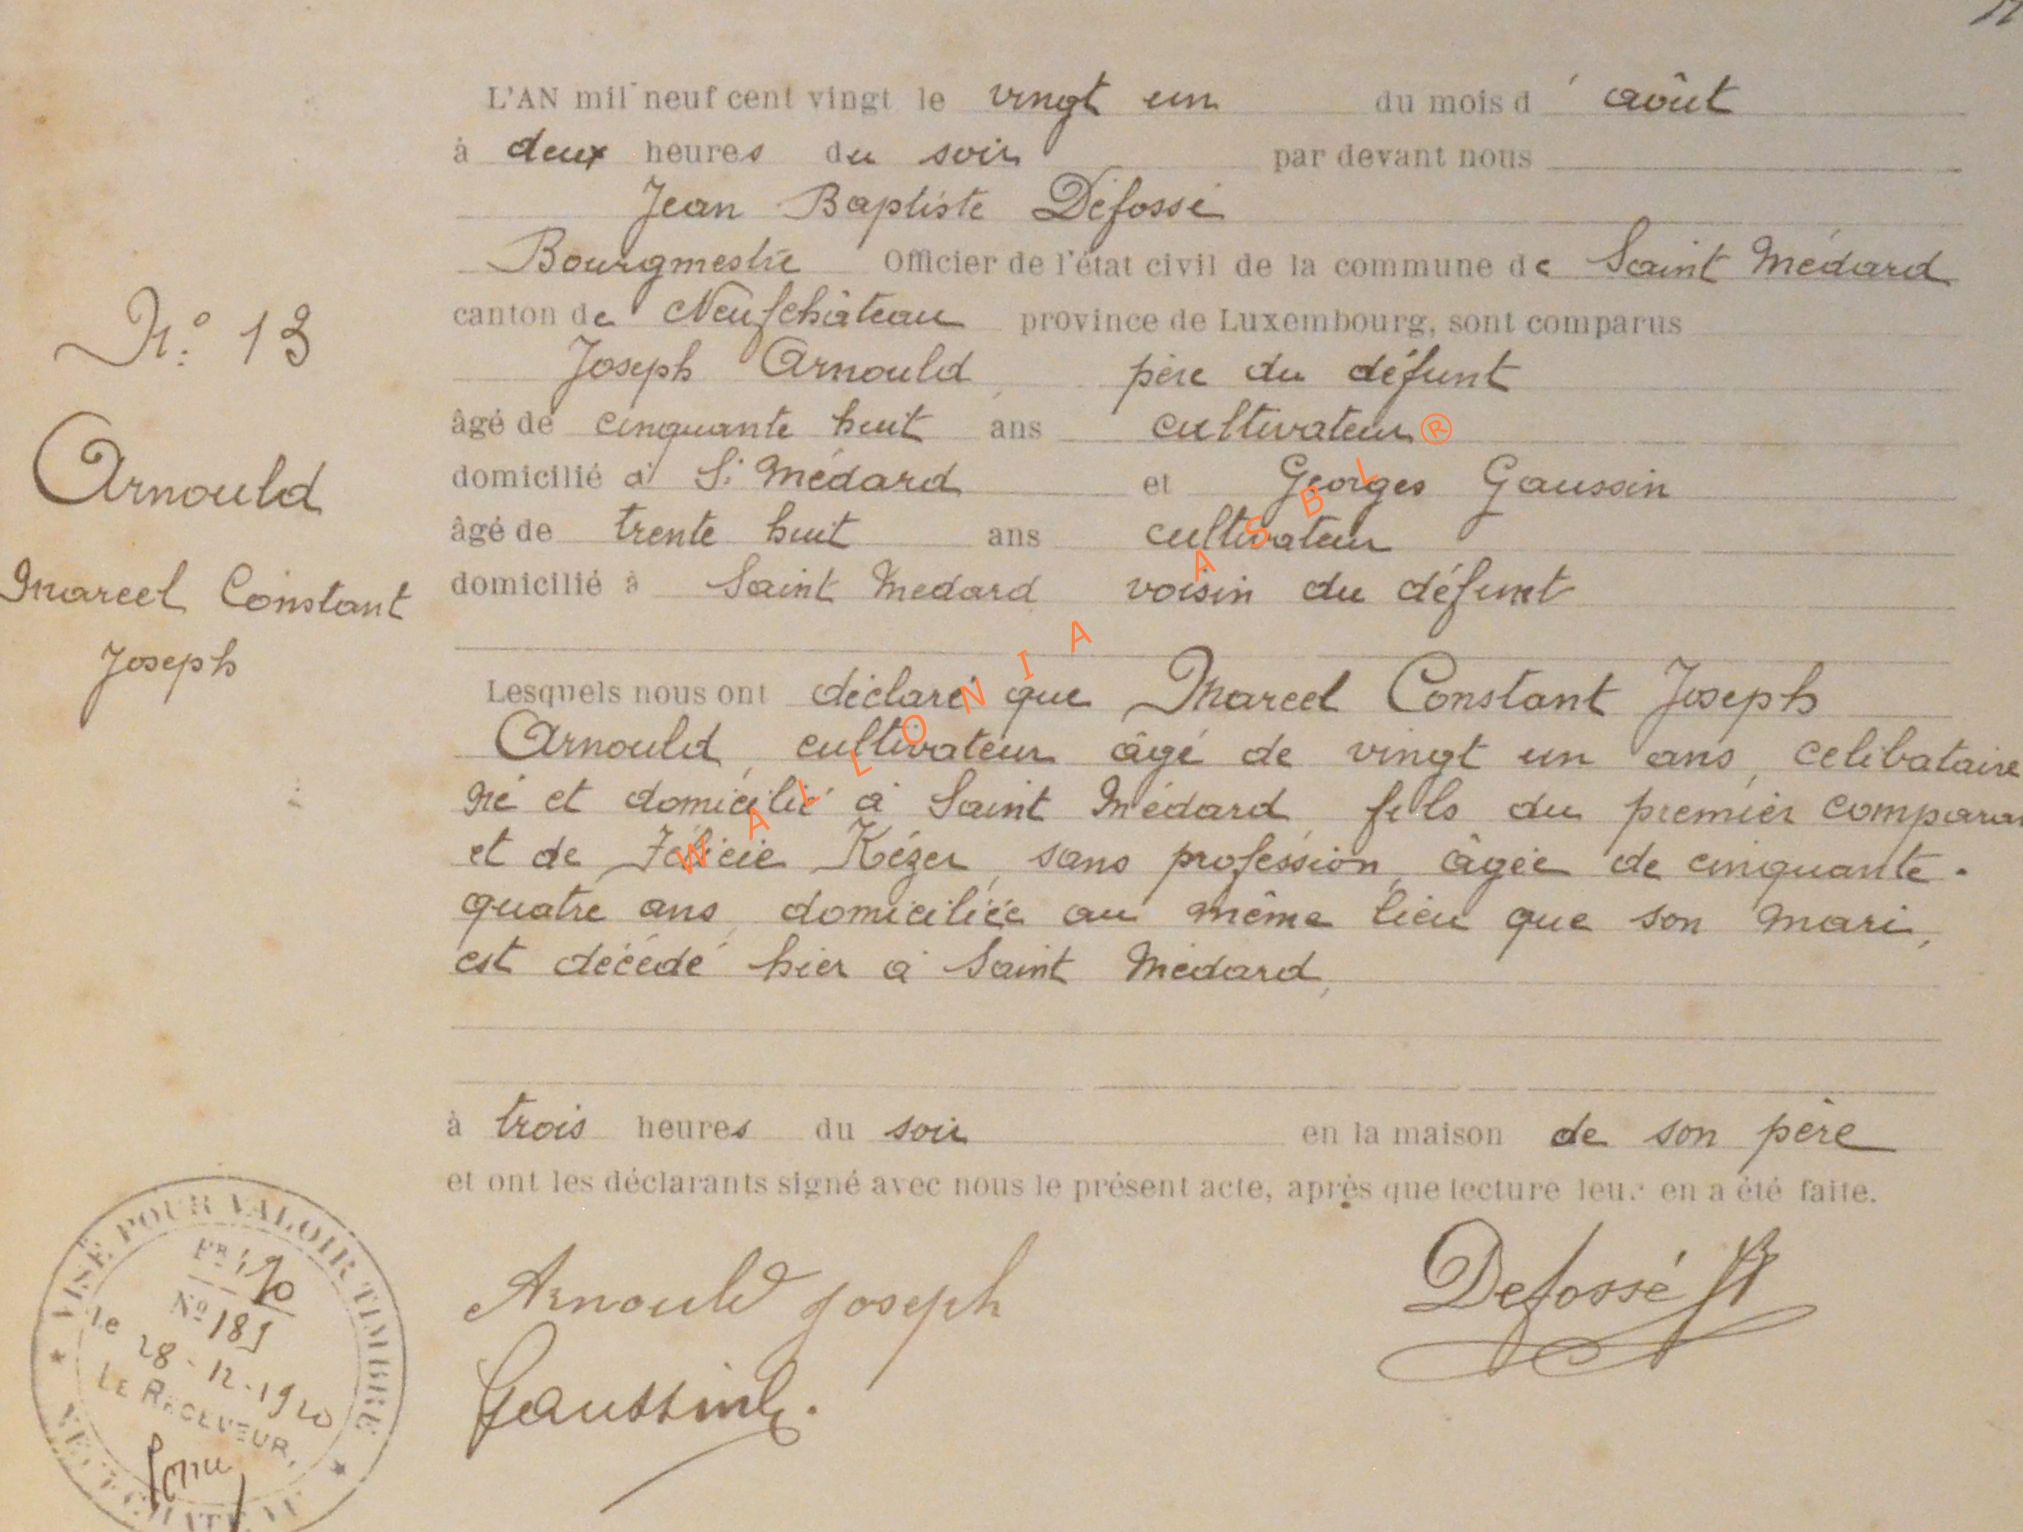 L'AN mil neuf cent vingt le vingt un du mois d' août
à deux heures du soir par devant nous
Jean Baptiste Défossé
Bourgmestre Officier de l'état civil de la commune de Saint Médard
canton de Neufchâteau province de Luxembourg, sont comparus
Joseph Arnould, père du défunt
âgé de cinquante huit ans cultivateur ®
domicilié à St Médard et Georges Gaussin
âgé de trente huit ans cultivateur
domicilié à Saint Medard voisin du défunt
N° 13
Arnould
Marcel Constant
Joseph
Lesquels nous ont déclaré que Marcel Constant Joseph
Arnould, cultivateur âgé de vingt un ans, celibataire
né et domicilié à Saint Médard fils du premier comparan
et de Félicie Kézer, sans profession, âgée de cinquante-
quatre ans, domiciliée au même lieu que son mari,
est décédé hier à Saint Médard,
WALLONIA ASBL
à trois heures du soir en la maison de son père
et ont les déclarants signé avec nous le présent acte, après que lecture leur en a été faite.
Arnould Joseph
Defossé JB
Gaussin G.
VISÉ POUR VALOIR TIMBRE
Nº 189
Le 28-12-1920
LE RECEVEUR,
NEUFCHATEAU